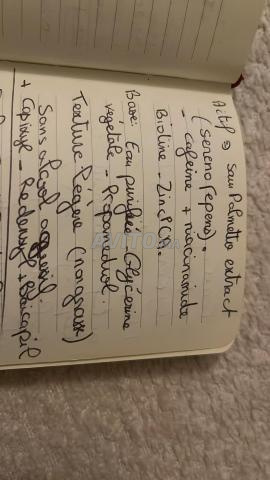 Actif => Saw Palmetto extract
(Serenoa repens).
- Cafeine + niacinamide
Biotine - Zinc PCA.
Base: Eau purifiée - Glycérine
végétale - Propanediol.
Texture légère (non grasse)
Sans alcool agressif.
+ Capixyl - Redensyl + Baicapil